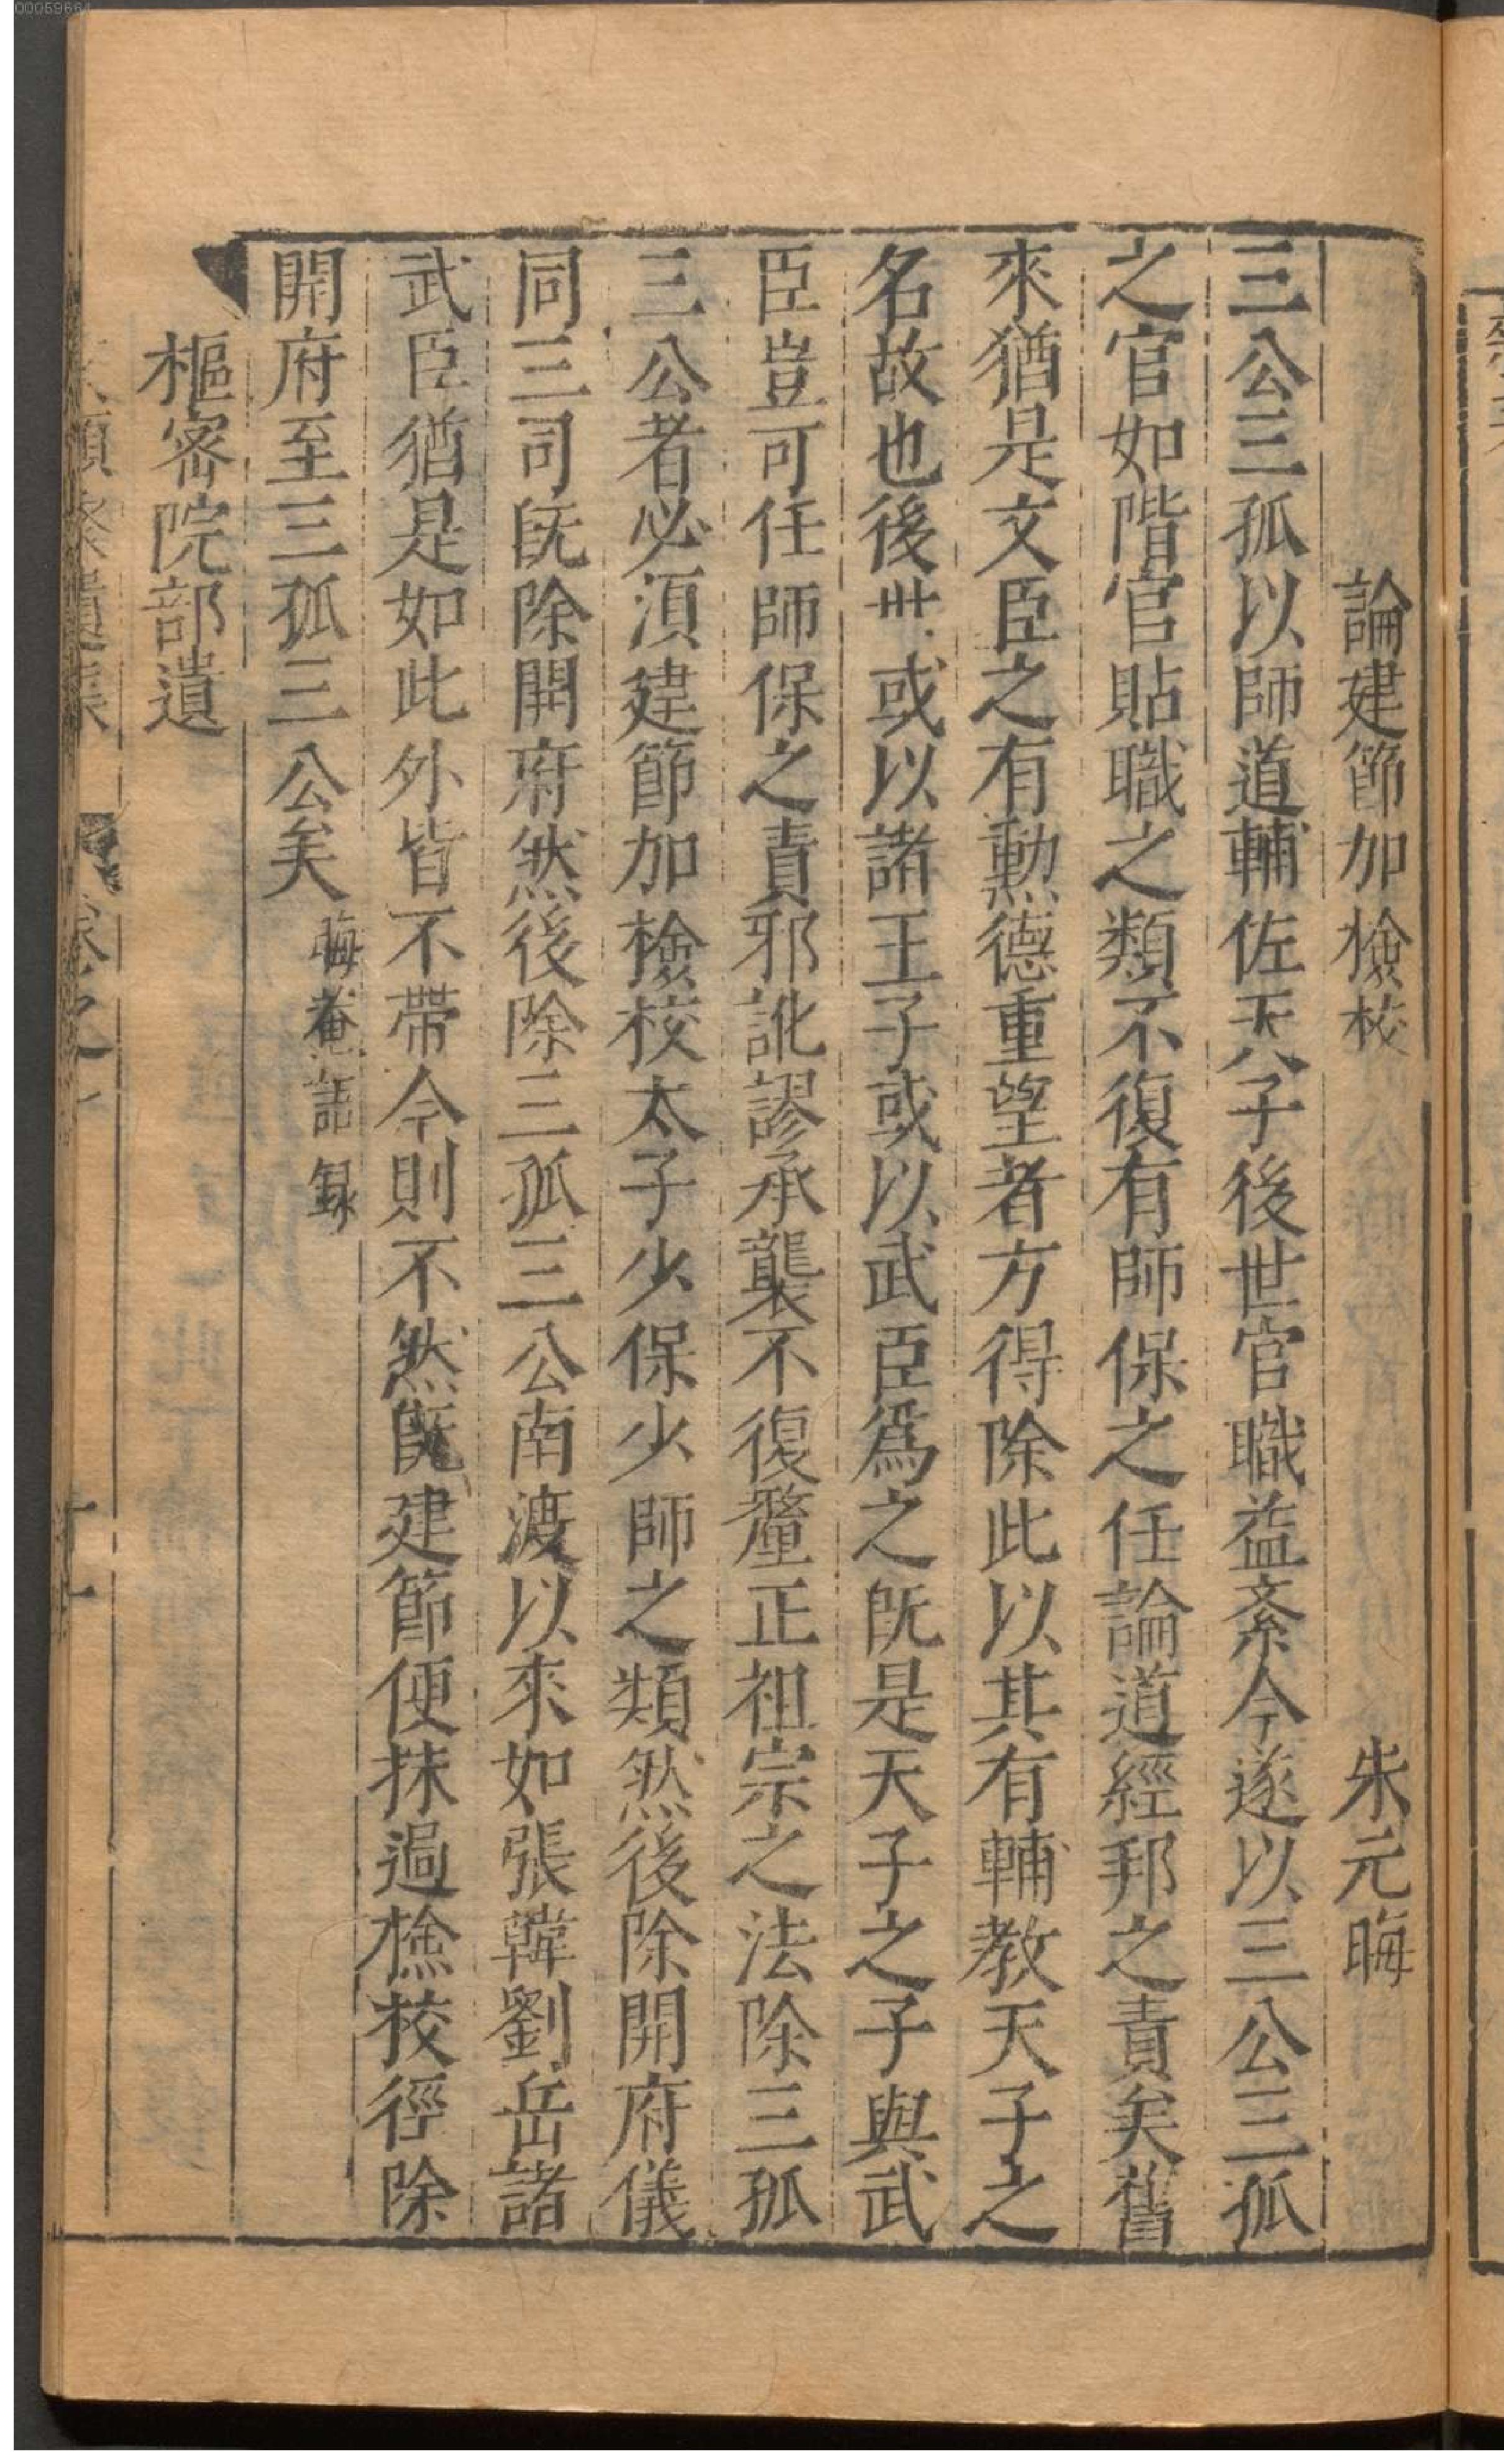 00059664
論建節加檢校 朱元晦
三公三孤以師道輔佐天子後世官職益紊今遂以三公三孤
之官如階官貼職之類不復有師保之任論道經邦之責矣舊
來猶是文臣之有勲德重望者方得除此以其有輔教天子之
名故也後丗或以諸王子或以武臣爲之既是天子之子與武
臣豈可任師保之責邪訛謬承襲不復釐正祖宗之法除三孤
三公者必湏建節加檢校太子少保少師之類然後除開府儀
同三司既除開府然後除三孤三公南渡以來如張韓劉岳諸
武臣猶是如此外皆不帶今則不然既建節便抹過檢校徑除
開府至三孤三公矣 晦菴語録
樞密院部遺
卷之
十一